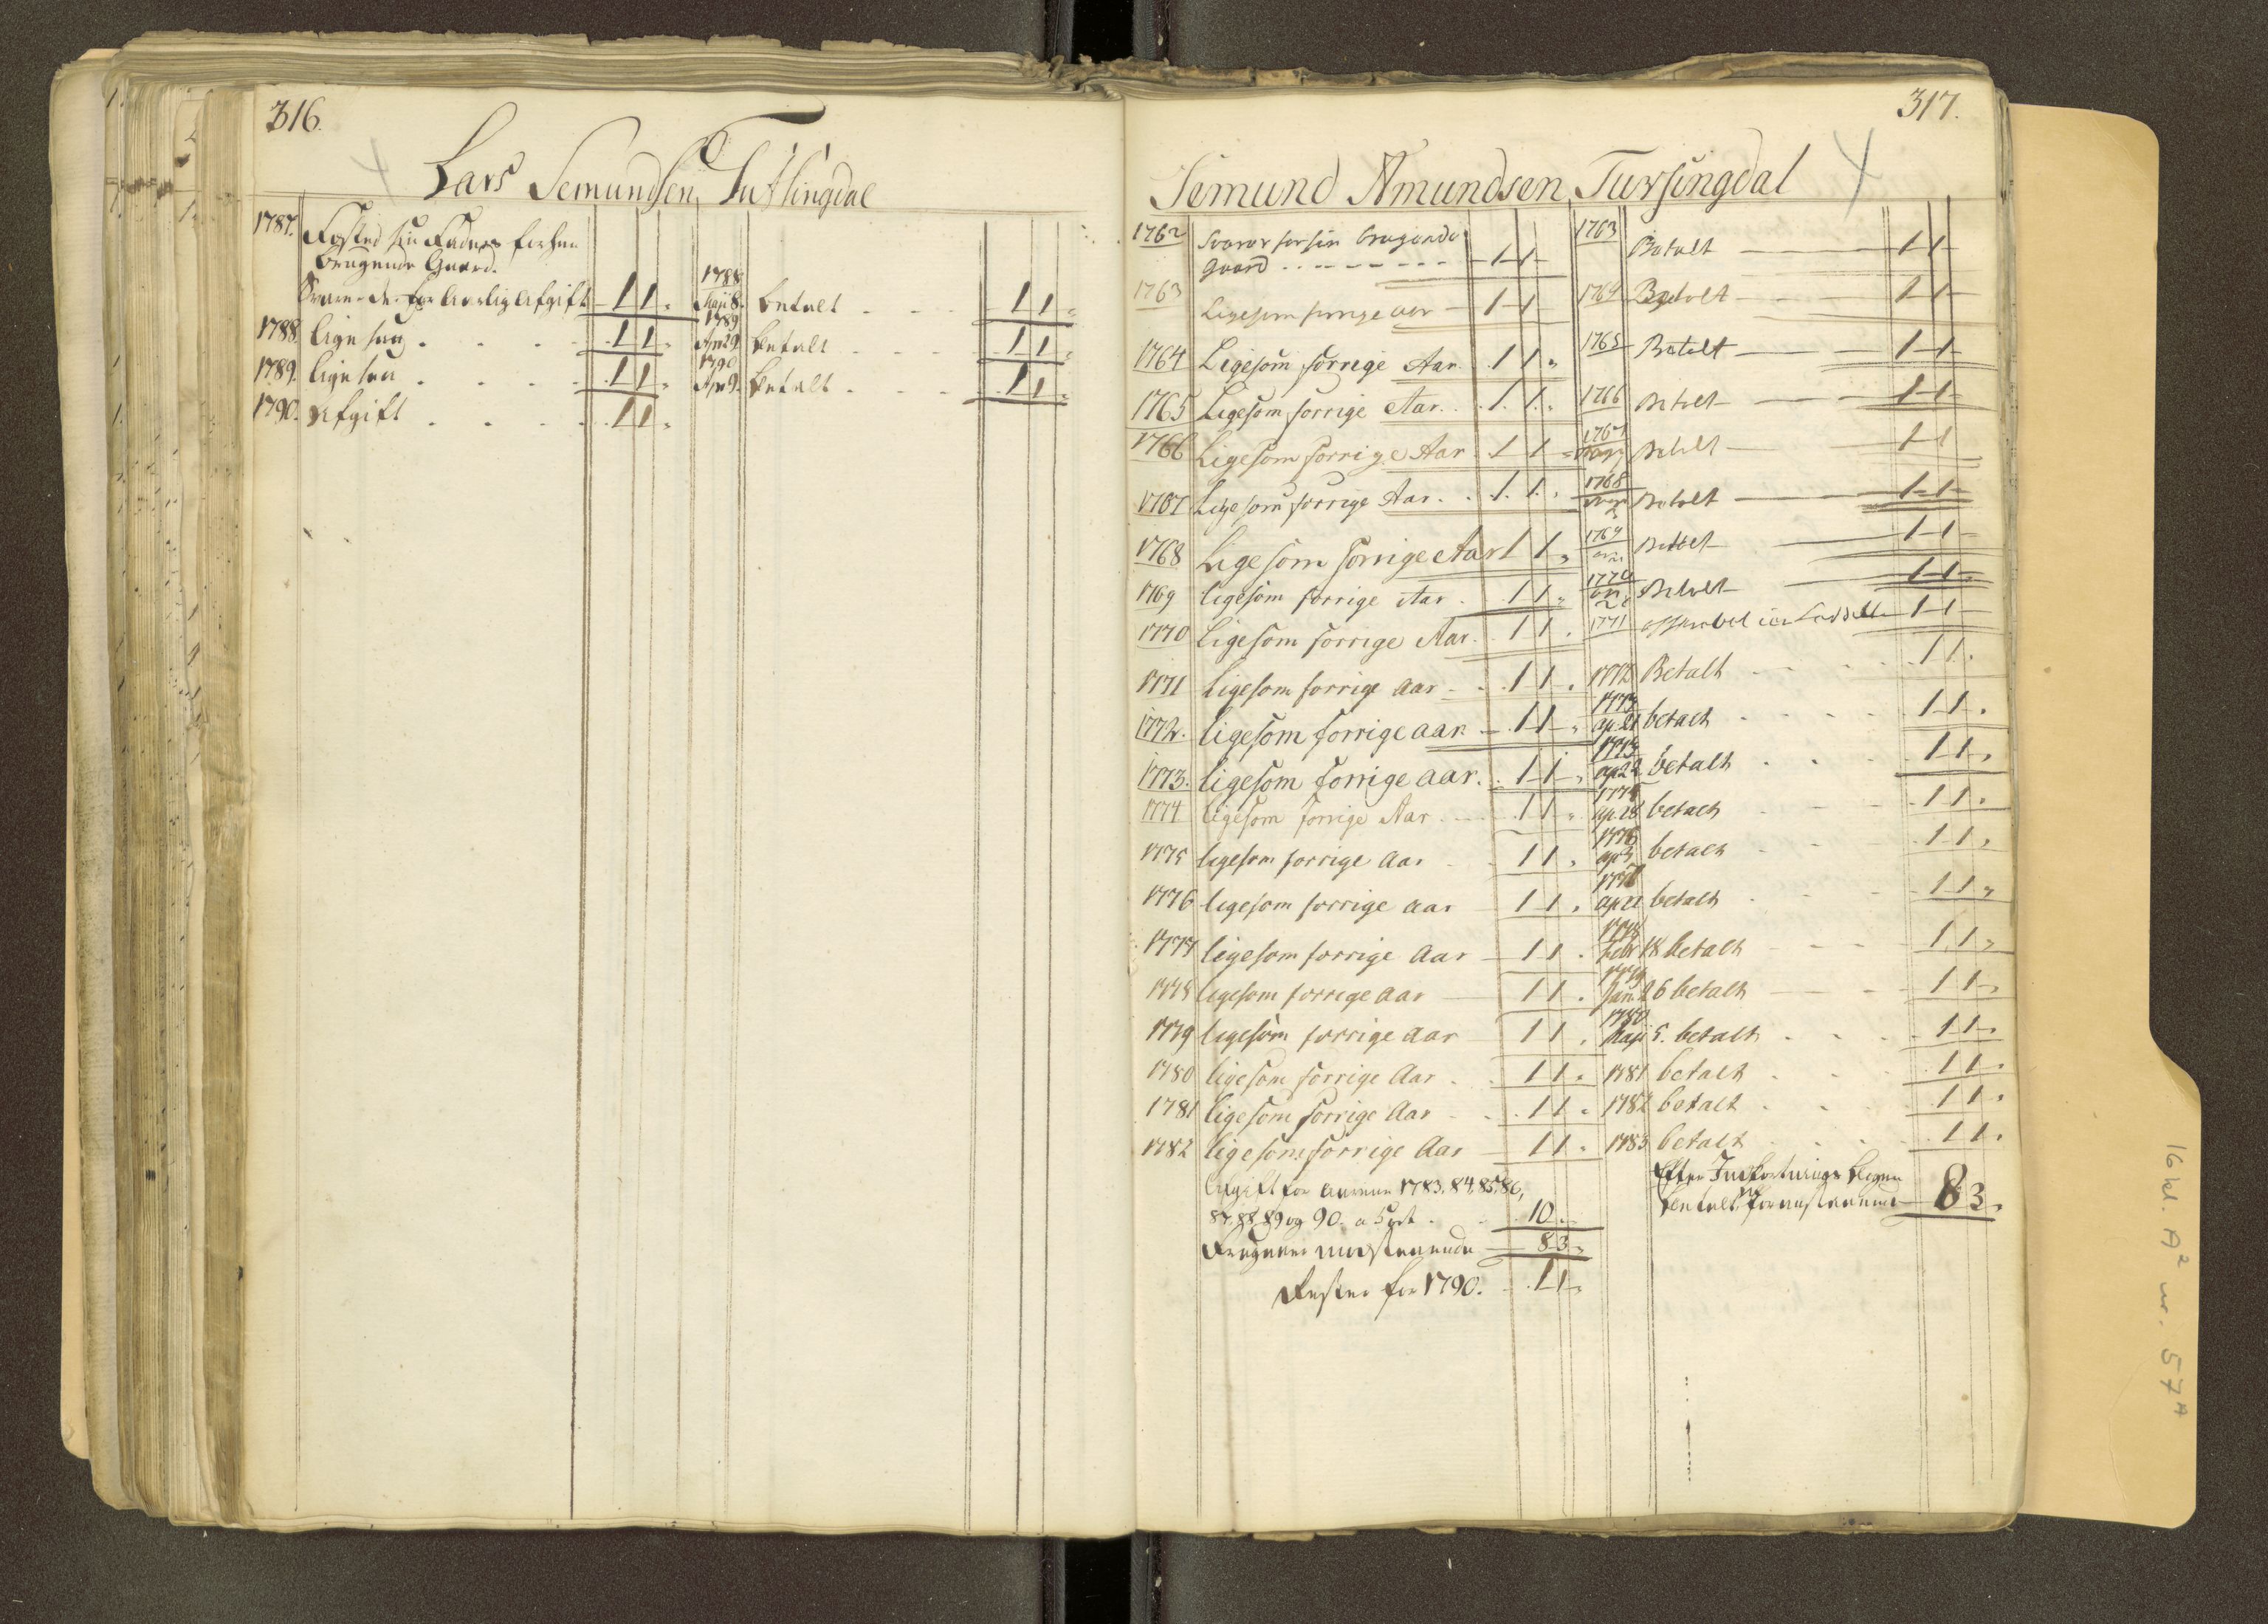 316.
Lars Semundsen Tutsingdal
1787. Fæsted sin Faders forhen
brugende Gaard.
Svarer der for aarlig Afgift 1 1 „ 1788 Maji 8. betalt 1 1 „
1788. lige saa 1 1 „ 1789 Apr 29. betalt 1 1 „
1789. lige saa 1 1 „ 1790 Apr 9. betalt 1 1 „
1790. Afgift 1 1 „
317.
Semund Amundsen Tursingdal
1762 Svarer for sin brugende
Gaard 1 1 1763 Betalt 1 1
1763 Ligesom forrige aar 1 1 1764 Betalt 1 1
1764 Ligesom forrige Aar 1 1 „ 1765 Betalt 1 1
1765 Ligesom forrige Aar 1 1 „ 1766 Betalt 1 1
1766 Ligesom forrige Aar 1 1 „ 1767 Betalt 1 1
1767 Ligesom forrige Aar 1 1 „ 1768 Betalt 1 1
1768 Ligesom forrige Aar 1 1 „ 1769 Betalt 1 1
1769 ligesom forrige Aar 1 1 „ 1770 Betalt 1 1
1770 Ligesom forrige Aar 1 1 „ 1771 1 1
1771 Ligesom forrige aar 1 1 „ 1772 Betalt 1 1 „
1772. ligesom forrige aar 1 1 „ 1773 ap. 21 betalt 1 1 „
1773. ligesom forrige aar. 1 1 „ ap 22 betalt 1 1 „
1774 ligesom forrige Aar 1 1 „ 1775 ap. 28 betalt 1 1 „
1775 ligesom forrige Aar 1 1 „ 1776 ap 3 betalt 1 1 „
1776 ligesom forrige aar 1 1 „ 1777 ap 21 betalt 1 1 „
1777 ligesom forrige Aar 1 1 „ 1778 Febr 18 betalt 1 1 „
1778 ligesom forrige aar 1 1 „ 1779 Jan. 26 betalt 1 1 „
1779 ligesom forrige aar 1 1 „ 1780 Maji 5. betalt 1 1 „
1780 ligesom forrige Aar 1 1 „ 1781 betalt 1 1 „
1781 ligesom forrige Aar 1 1 „ 1782 betalt 1 1 „
1782 ligesom forrige Aar 1 1 „ 1783 betalt 1 1 „
Afgift for Aarene 1783. 84, 85, 86,
87. 88 89 og 90. a 5 ort 10 „
Efter Indfortnings Bogen
betalt for anstaaende 8 3 „
Fragaaer modstaaende 8 3 „
Rester for 1790. 1 1 „
16 kl. A² nr. 57ᴬ